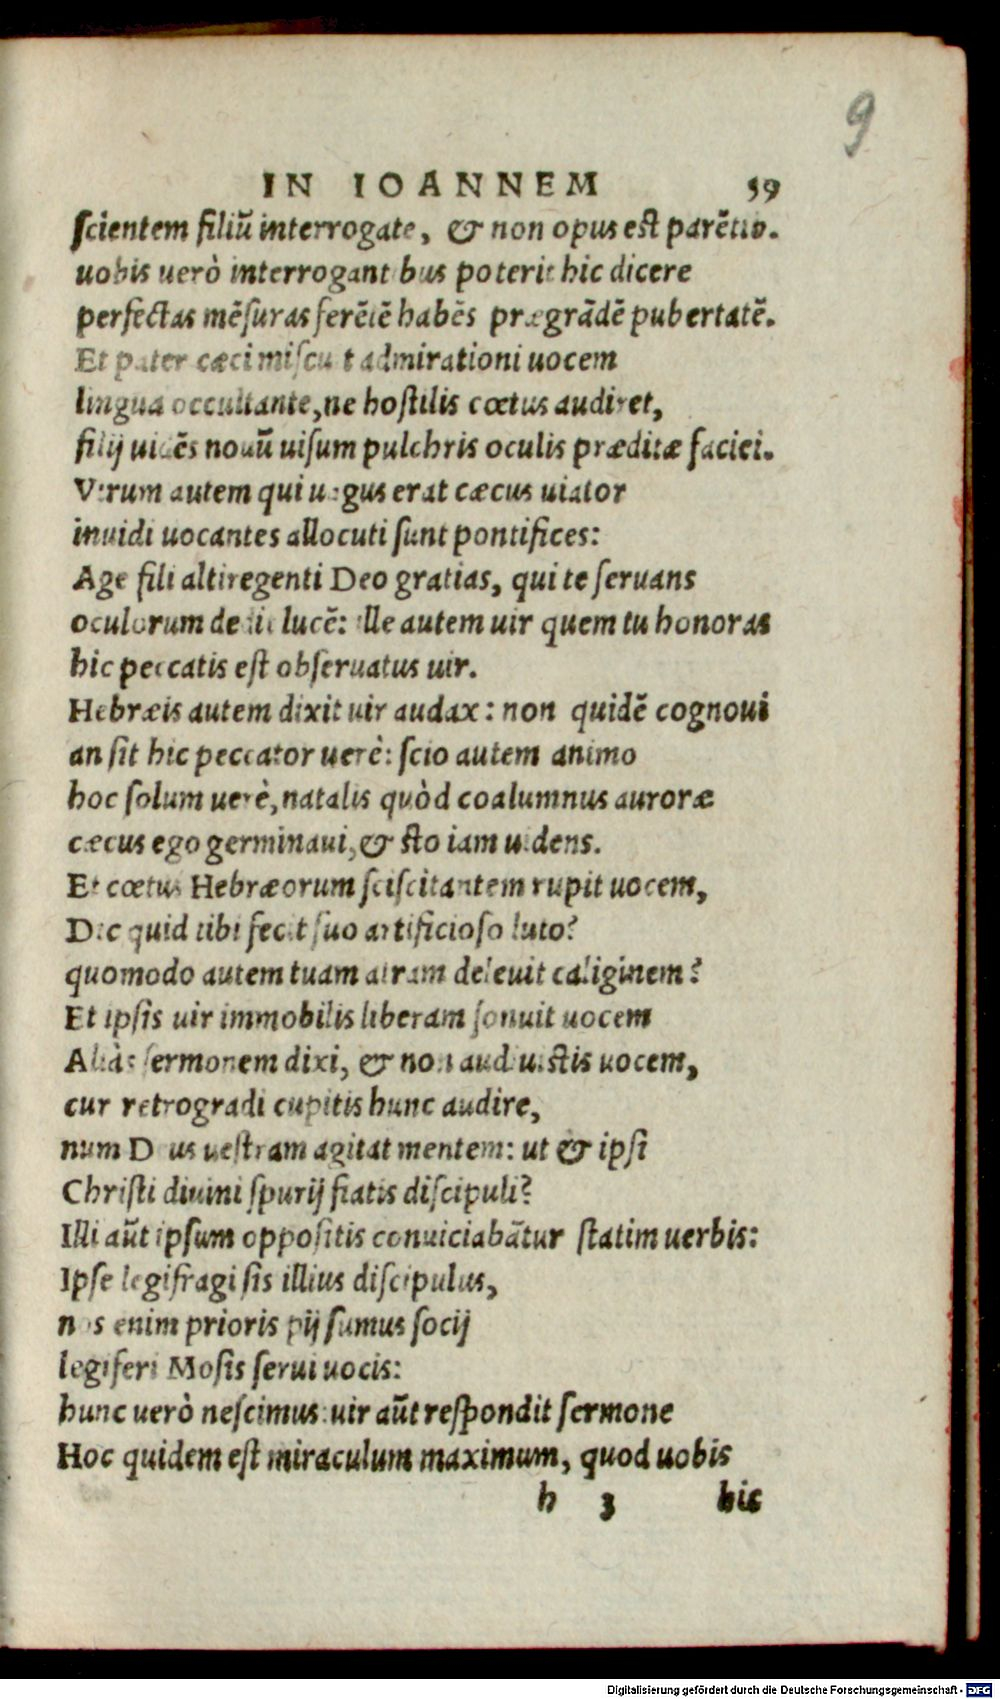 9
IN IOANNEM 59
scientem filiũ interrogate, & non opus est parẽtib.
uobis uerò interrogantibus poterit hic dicere
perfectas mẽsuras ferẽtẽ habẽs prægrãdẽ pubertatẽ.
Et pater cæci miscuit admirationi uocem
lingua occultante, ne hostilis cœtus audiret,
filij uidẽs nouũ uisum pulchris oculis præditæ faciei.
Virum autem qui uagus erat cæcus uiator
inuidi uocantes allocuti sunt pontifices:
Age fili altiregenti Deo gratias, qui te seruans
oculorum dedit lucẽ: ille autem uir quem tu honoras
hic peccatis est obseruatus uir.
Hebræis autem dixit uir audax: non quidẽ cognoui
an sit hic peccator uerè: scio autem animo
hoc solum uerè, natalis quòd coalumnus auroræ
cæcus ego germinaui, & sto iam uidens.
Et cœtus Hebræorum sciscitantem rupit uocem,
Dic quid tibi fecit suo artificioso luto?
quomodo autem tuam atram deleuit caliginem?
Et ipsis uir immobilis liberam sonuit uocem
Aliàs sermonem dixi, & non audiuistis uocem,
cur retrogradi cupitis hunc audire,
num Deus uestram agitat mentem: ut & ipsi
Christi diuini spurij fiatis discipuli?
Illi aũt ipsum oppositis conuiciabãtur statim uerbis:
Ipse legifragi sis illius discipulus,
nos enim prioris pij sumus socij
legiferi Mosis serui uocis:
hunc uerò nescimus: uir aũt respondit sermone
Hoc quidem est miraculum maximum, quod uobis
h 3 hic
Digitalisierung gefördert durch die Deutsche Forschungsgemeinschaft - DFG